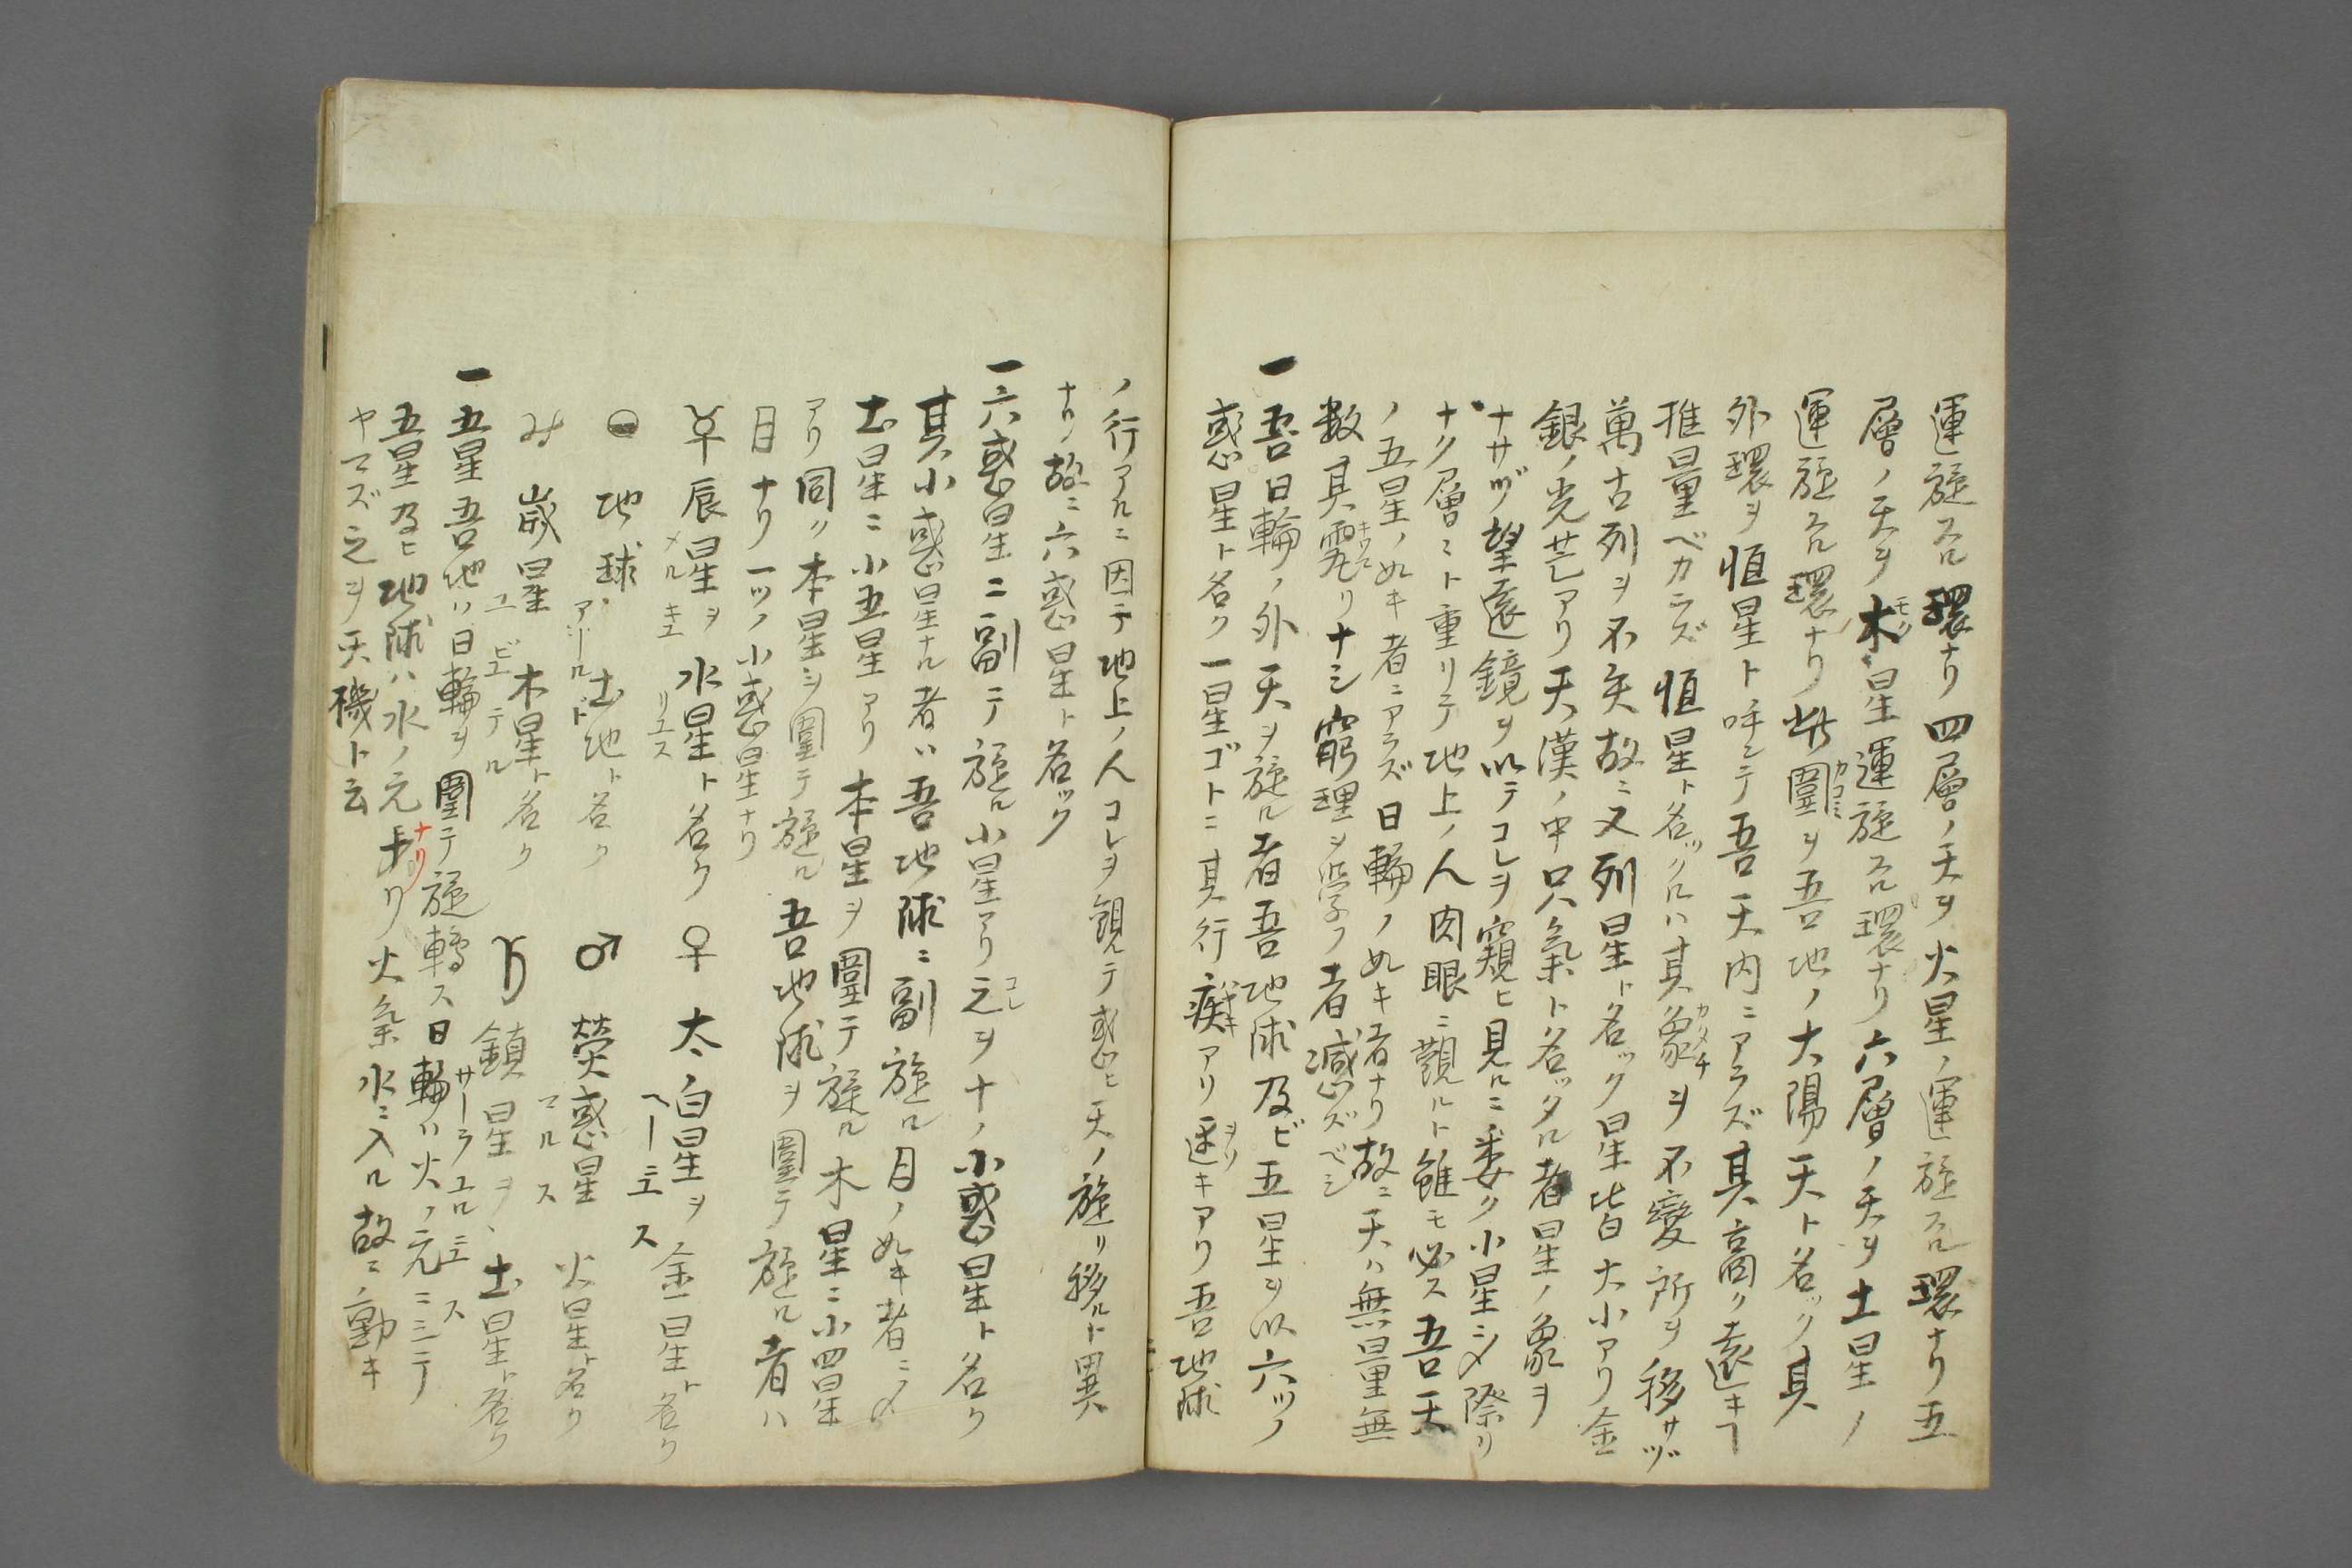 運旋スル環ナリ四層ノ天ヲ火星ノ運旋スル環ナリ五
層ノ天ヲ木モク星運旋スル環ナリ六層ノ天ヲ土星ノ
運旋スル環ナリ此圍カコミヲ吾地ノ大陽天ト名ツク其
外環ヲ恒星ト呼シテ吾天内ニアラズ其高ク遠キヿ
推量ベカラズ恒星ト名ツクルハ其象カタチヲ不變所ヲ移サヅ
萬古列ヲ不失故ニ又列星ト名ツク星皆大小アリ金
銀ノ光芒アリ天漢ノ中只氣ト名ツタル者星ノ象ヲ
ナサヅ望遠鏡ヲ以テコレヲ窺ヒ見ルニ委ク小星シメ際リ
ナク層ニト重リテ地上ノ人肉眼ニ觀ルト雖モ必ス吾天
ノ五星ノ如キ者ニアラズ日輪ノ如キ者ナリ故ニ天ハ無量無
数其リナシ窮理ヲ學フ者減ズベシ
一吾日輪ノ外天ヲ旋ル者吾地球及ビ五星ヲ以六ツノ
惑星ト名ク一星ゴトニ其行アリ遅ヲソキアリ吾地球
ノ行アルニ因テ地上ノ人コレヲ観テ惑ヒ天ノ旋リ移ルト異
ナリ故ニ六惑星ト名ツク
一六惑星ニ副テ旋ル小星アリ之コレヲナノ小惑星ト名ク
其小惑星ナル者ハ吾地球ニ副旋ル月ノ如キ者ニメ
土星ニ小五星アリ本星ヲ圍テ旋ル木星ニ小四星
アリ同ク本星シ圍テ旋ル吾地球ヲ圍テ旋ル者ハ
月ナリ一ツノ小惑星ナリ
☿辰星ヲ水星ト名クメルキユリユス ♀太白星ヲ金星ト名クヘーニユス
地球土地ト名クアールド ♂熒惑星火星ト名クマルス
♃歳星木星ト名クユピエテル ♄鎮星ヲ土星ト名クサーラユルニユス
一五星吾地ハ日輪ヲ圍テ旋轉ス日輪ハ火ノ元ニシテ
五星及ヒ地球ハ水ノ元ナリ火氣水ニ入ル故ニ動キ
ヤマズ之ヲ天機ト云